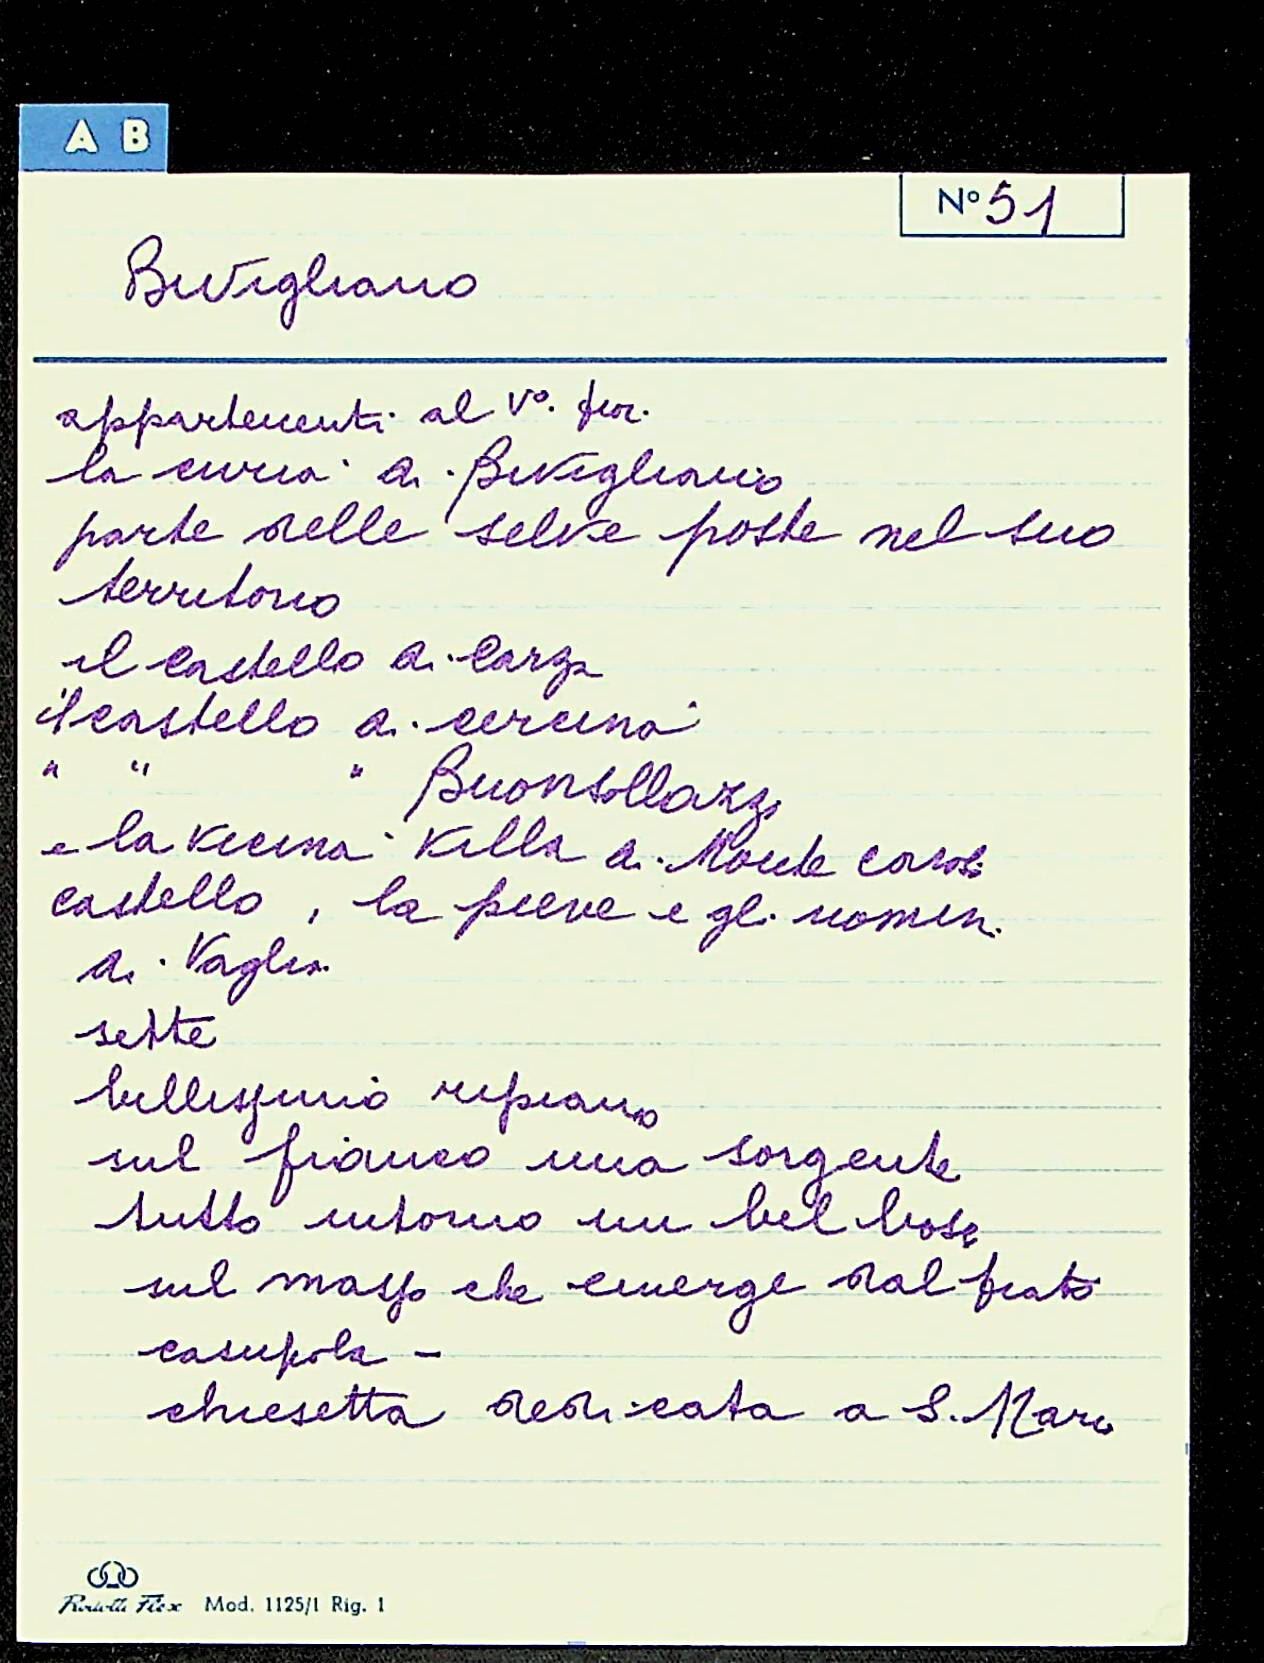 A B
N° 51
Bivigliano
appartenenti al V°. fior.
la curia di Bivigliano
parte delle selve poste nel suo
territorio
il castello di Carza
il castello di cercina
" " " Buonsollazzo
e la vicina villa di Monte
castello, la pieve e gli uomini
di Vaglia
sette
bellissimo ripiano
sul fianco una sorgente
tutto intorno un bel bosco
sul masso che emerge dal prato
casupola -
chiesetta dedicata a S.
Mod. 1125/1 Rig. 1